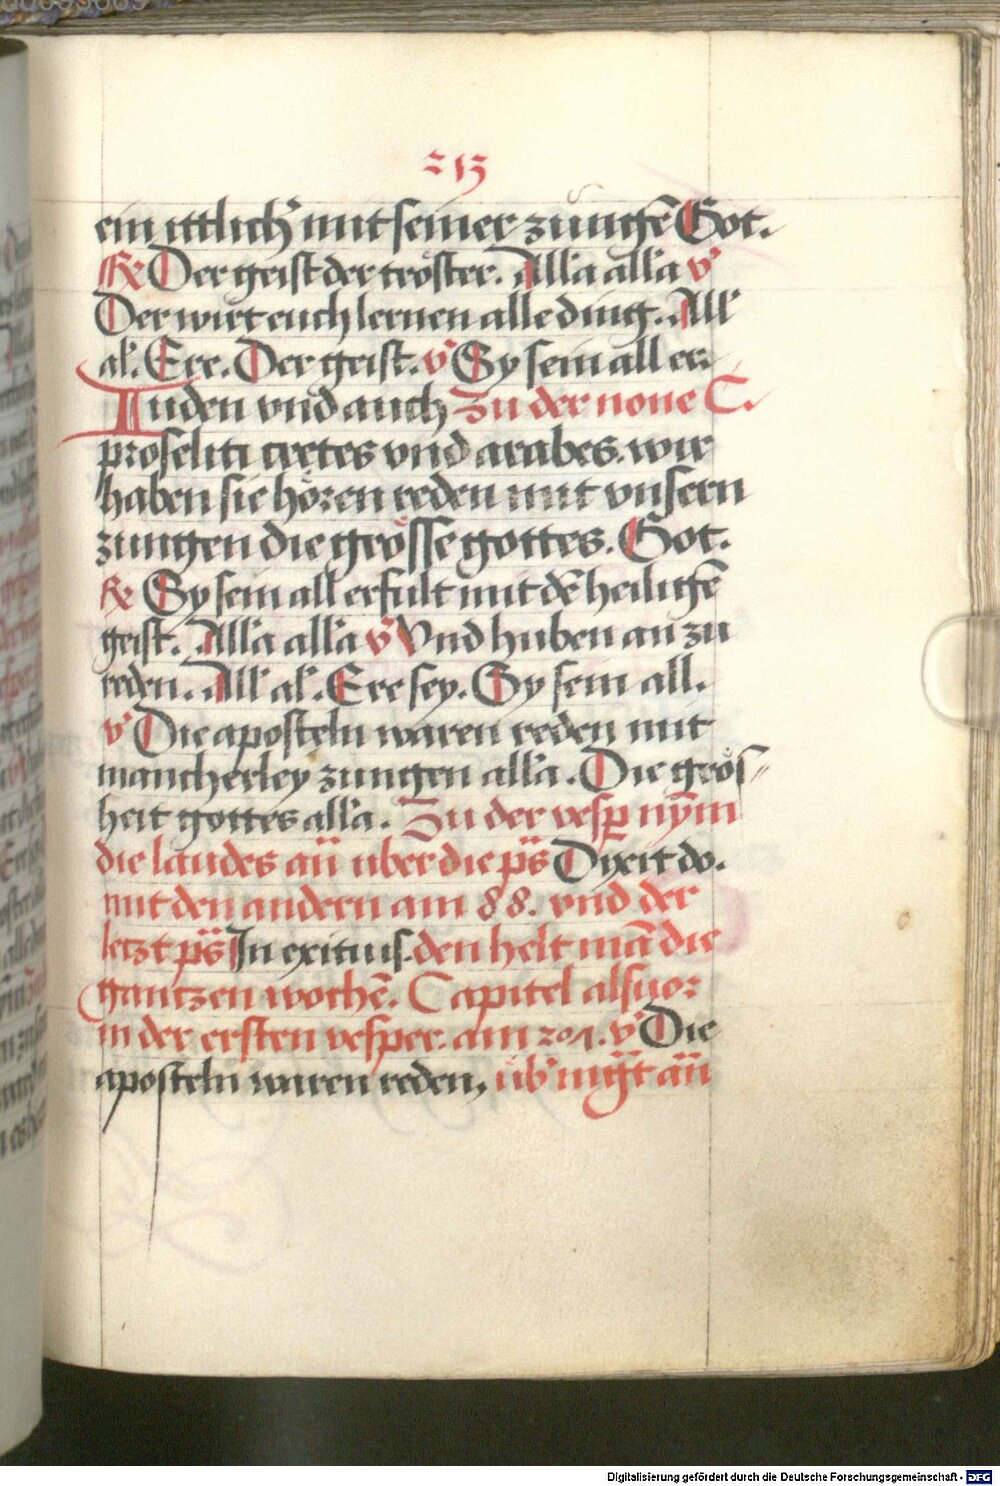 213
ein ittlich’ mit seiner zungē Got.
℟ Der geist der tröster. All’a all’a v’
Der wirt euch lernen alle ding. All’
al’. Ere. Der geist. v’ Sy sein all er:
Iuden vnd auch Zu der none C.
proseliti cretes vnd arabes. wir
haben sie hören reden mit vnsern
zungen die grösse gottes. Got.
℟ Sy sein all erfult mit dē heiligē
geist. All’a all’a v’ Vnd huben an zu
reden. All’ al’. Ere sey. Sy sein all.
v’ Die aposteln waren reden mit
mancherley zungen all’a. Die grös-
heit gottes all’a. Zu der vesp nym
die laudes an̄ uber die ps Dixit do.
mit den andern am 88. vnd der
letzt ps In exitus. den helt mā die
gantzen wochē. Capitel als uor
in der ersten vesper. am 201. v’ Die
aposteln waren reden. üb’ mḡt an̄
Digitalisierung gefördert durch die Deutsche Forschungsgemeinschaft - DFG